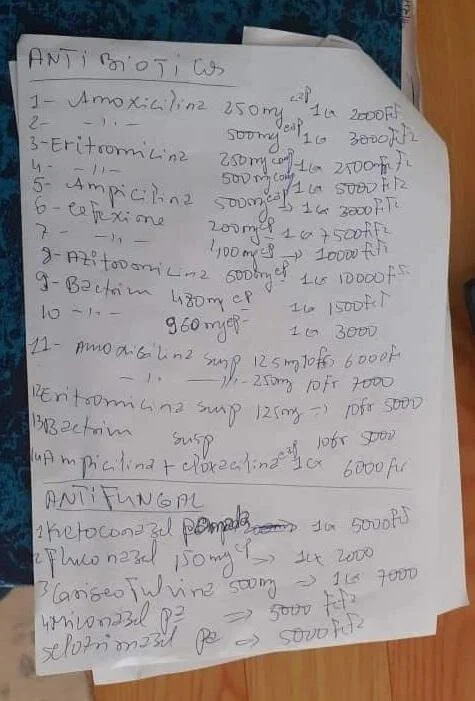 ANTIBIOTICOS
1- Amoxicilina 250mg cap 1cx 2000fcfa
2- -//- 500mg cap 1cx 3000fcfa
3- Eritromicina 250mg comp 1cx 2500fcfa
4- -//- 500mg comp 1cx 5000fcfa
5- Ampicilina 500mg cap 1cx 3000fcfa
6- Cefixione 200mg cp 1cx 7500fcfa
7- -//- 400mg cp -> 10000fcfa
8- Azitromicina 600mg cp 1cx 10000fcf
9- Bactrim 480mg cp 1cx 1500fcf
10 -//- 960mg cp- 1cx 3000
11- Amoxicilina susp 125mg 10fr 6000fr
-//- -//- 250mg 10fr 7000
12 Eritromicina susp 125mg -> 10fr 5000
13 Bactrim susp 10fr 5000
14 Ampicilina + cloxacilina cap 1cx 6000fcf
ANTIFUNGAL
1 Ketoconazol pomada 1cx 5000fcf
2 Fluconazol 150mg cp -> 1cx 2000
3 Griseofulvina 500mg -> 1cx 7000
4 Miconazol => 5000 fcfa
clotrimazol => 5000fcfa